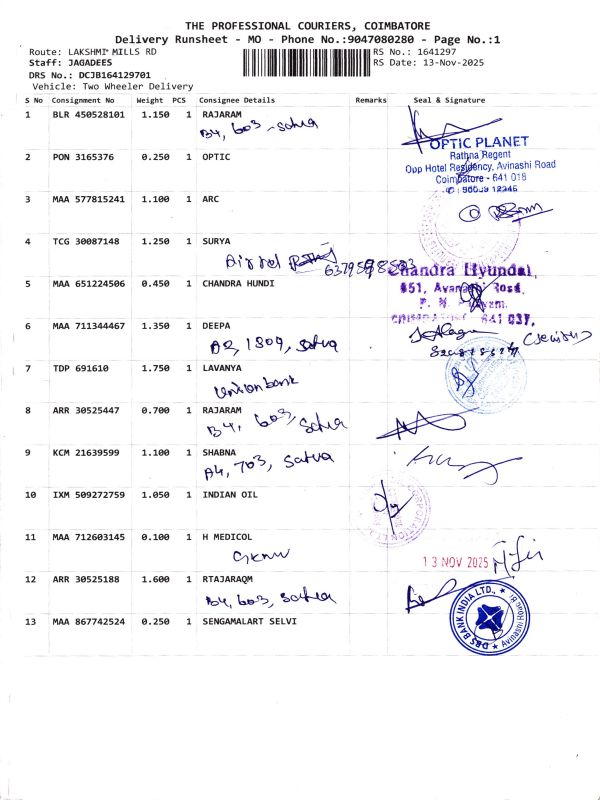 THE PROFESSIONAL COURIERS, COIMBATORE
Delivery Runsheet - MO - Phone No.:9047080280 - Page No.:1
Route: LAKSHMI MILLS RD RS No.: 1641297
Staff: JAGADEES RS Date: 13-Nov-2025
DRS No.: DCJB164129701
Vehicle: Two Wheeler Delivery
S No Consignment No Weight PCS Consignee Details Remarks Seal & Signature
1 BLR 450528101 1.150 1 RAJARAM
B4, 603 - Satva
OPTIC PLANET
2 PON 3165376 0.250 1 OPTIC
Rathna Regent
Opp Hotel Residency, Avinashi Road
Coimbatore - 641 018
3 MAA 577815241 1.100 1 ARC
4 TCG 30087148 1.250 1 SURYA
Airtel
Chandra Hyundai,
5 MAA 651224506 0.450 1 CHANDRA HUNDI
851, Avanashi Road,
641 037,
6 MAA 711344467 1.350 1 DEEPA
A2, 1809, Satva
7 TDP 691610 1.750 1 LAVANYA
Union bank
8 ARR 30525447 0.700 1 RAJARAM
B4, 603, Satva
9 KCM 21639599 1.100 1 SHABNA
A4, 703, Satva
10 IXM 509272759 1.050 1 INDIAN OIL
11 MAA 712603145 0.100 1 H MEDICOL
13 NOV 2025
12 ARR 30525188 1.600 1 RTAJARAQM
B4, 603, Satva
DBS BANK INDIA LTD.,
Avinashi Road Br.
13 MAA 867742524 0.250 1 SENGAMALART SELVI